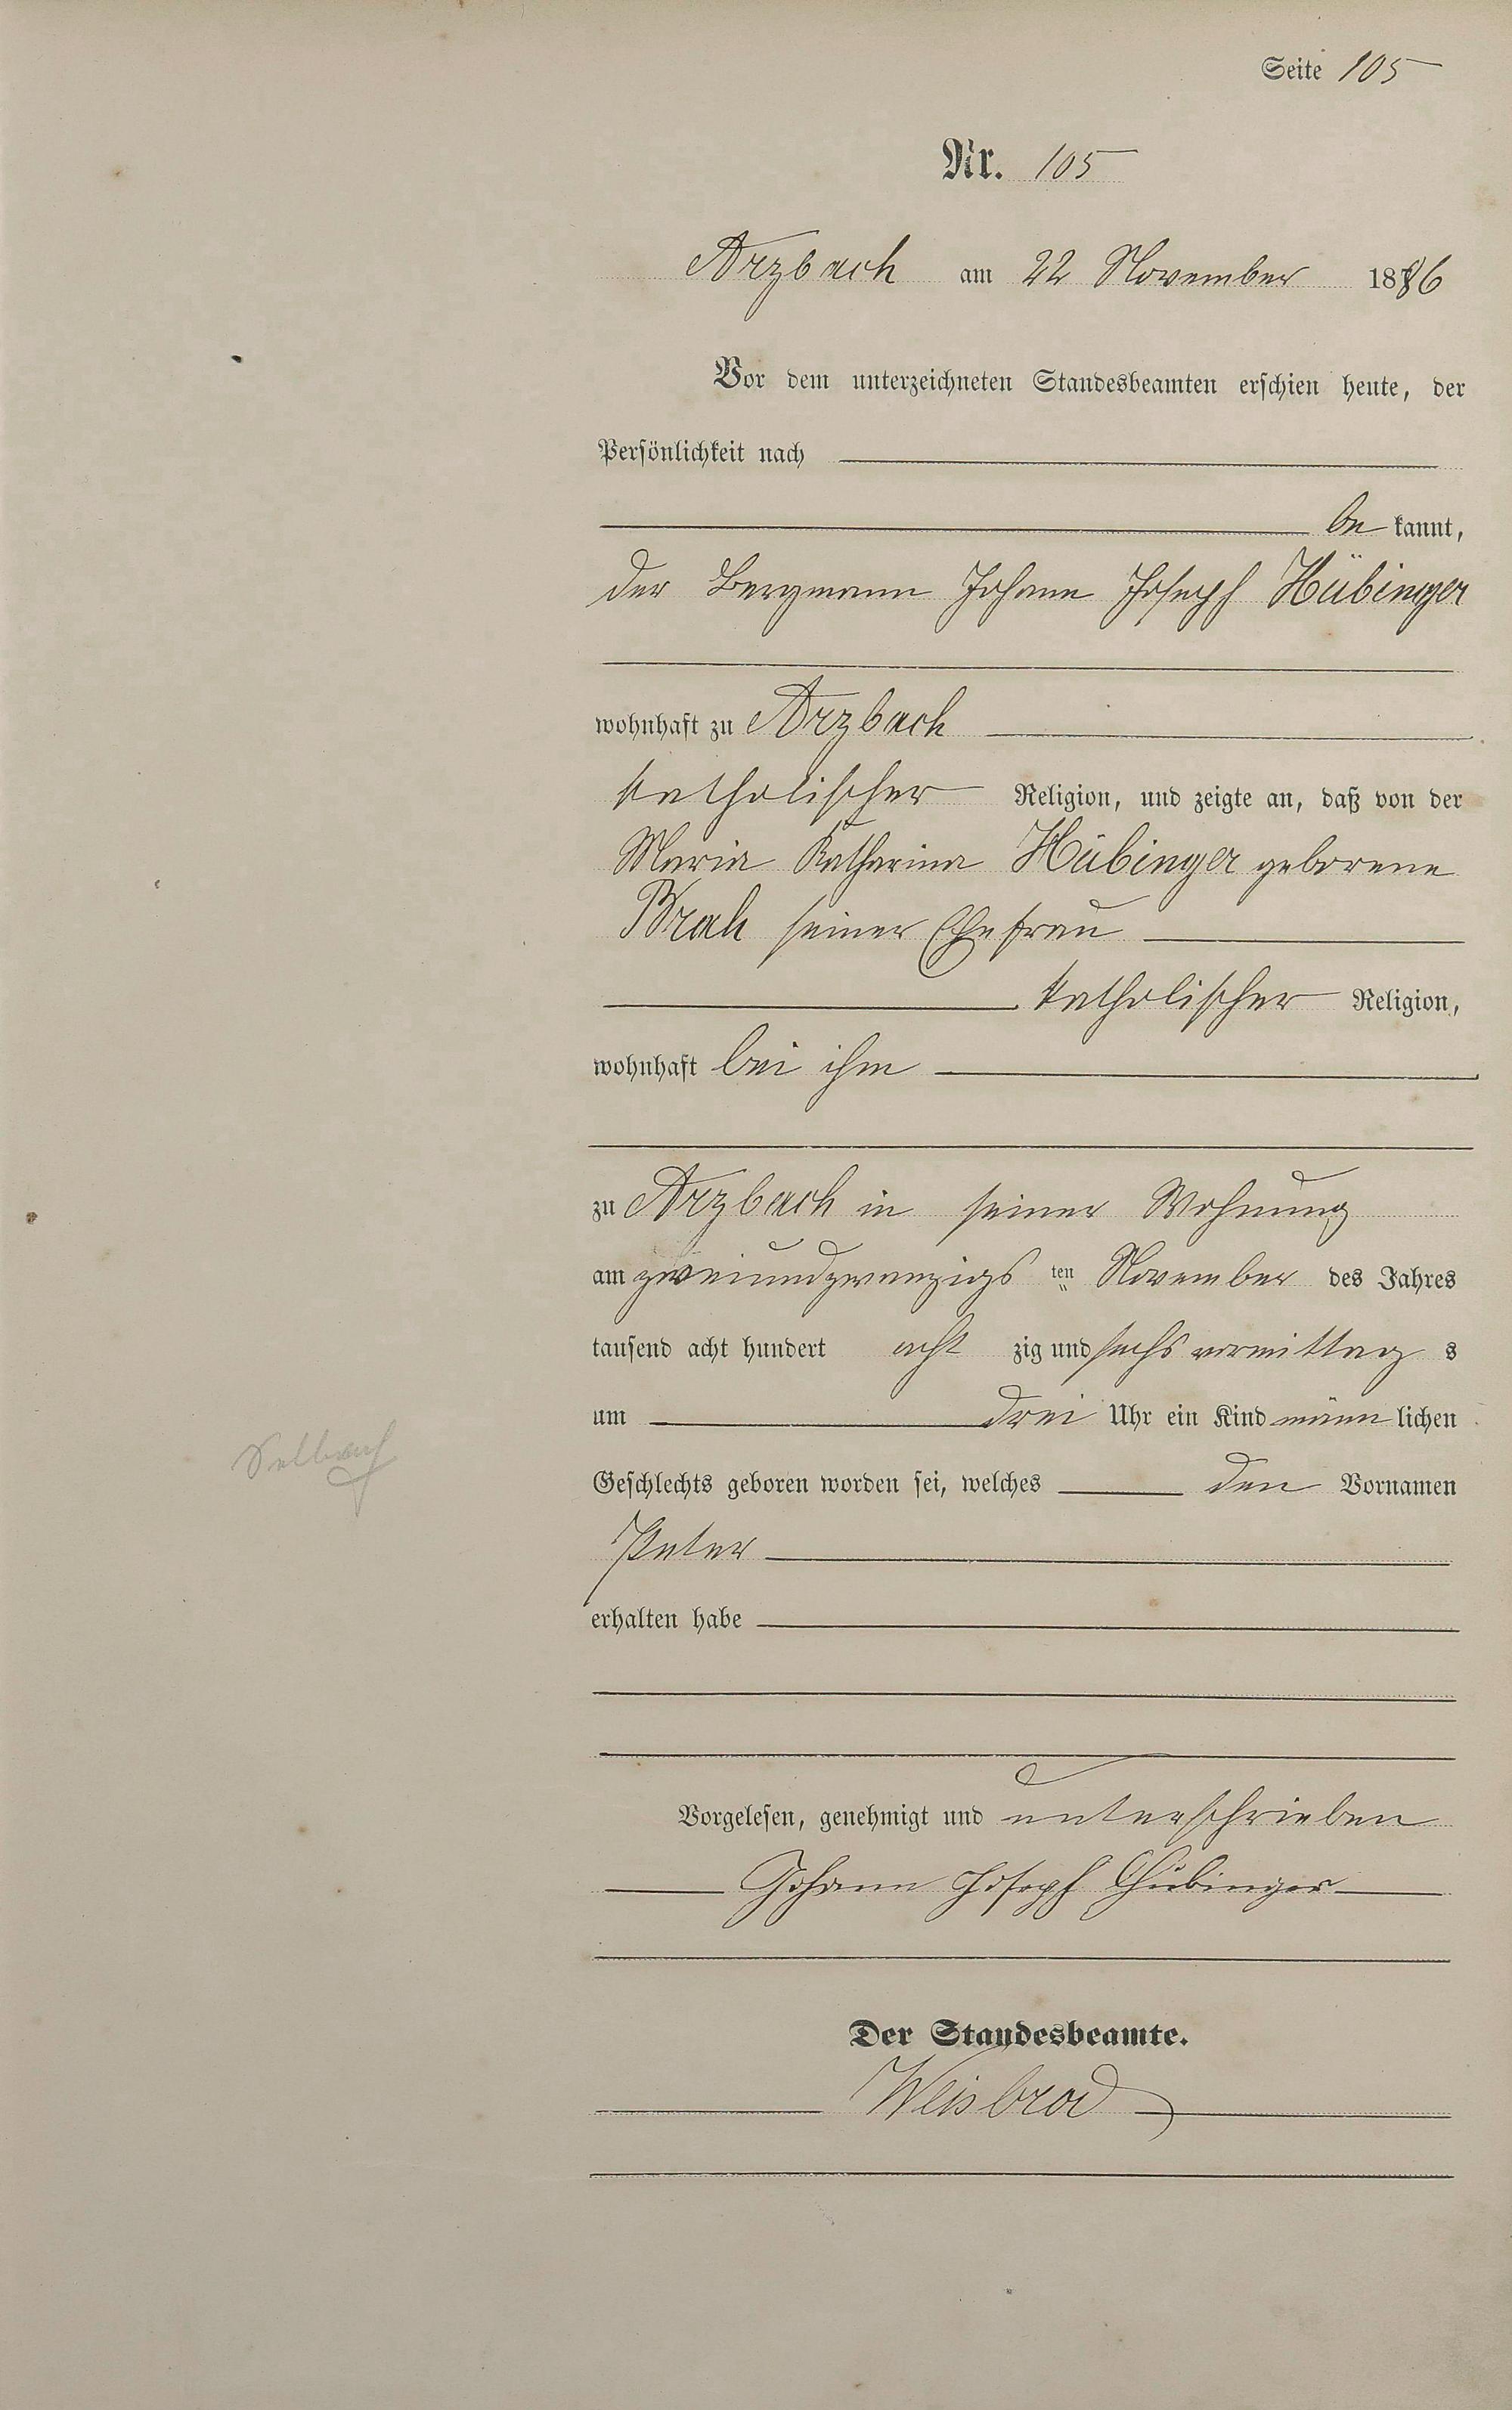 Seite 105
Nr. 105
Arzbach am 22 November 1886
Vor dem unterzeichneten Standesbeamten erschien heute, der
Persönlichkeit nach
be kannt,
der Bergmann Johann Joseph Hübinger
wohnhaft zu Arzbach
katholischer Religion, und zeigte an, daß von der
Maria Katharina Hübinger geborene
Brah seiner Ehefrau
katholischer Religion,
wohnhaft bei ihm
zu Arzbach in seiner Wohnung
am zweiundzwanzigs ten November des Jahres
tausend acht hundert acht zig und sechs vormittag s
um drei Uhr ein Kind männ lichen
Geschlechts geboren worden sei, welches den Vornamen
Peter
erhalten habe
Vorgelesen, genehmigt und unterschrieben
Johann Joseph Hübinger
Der Standesbeamte.
Weisbrod